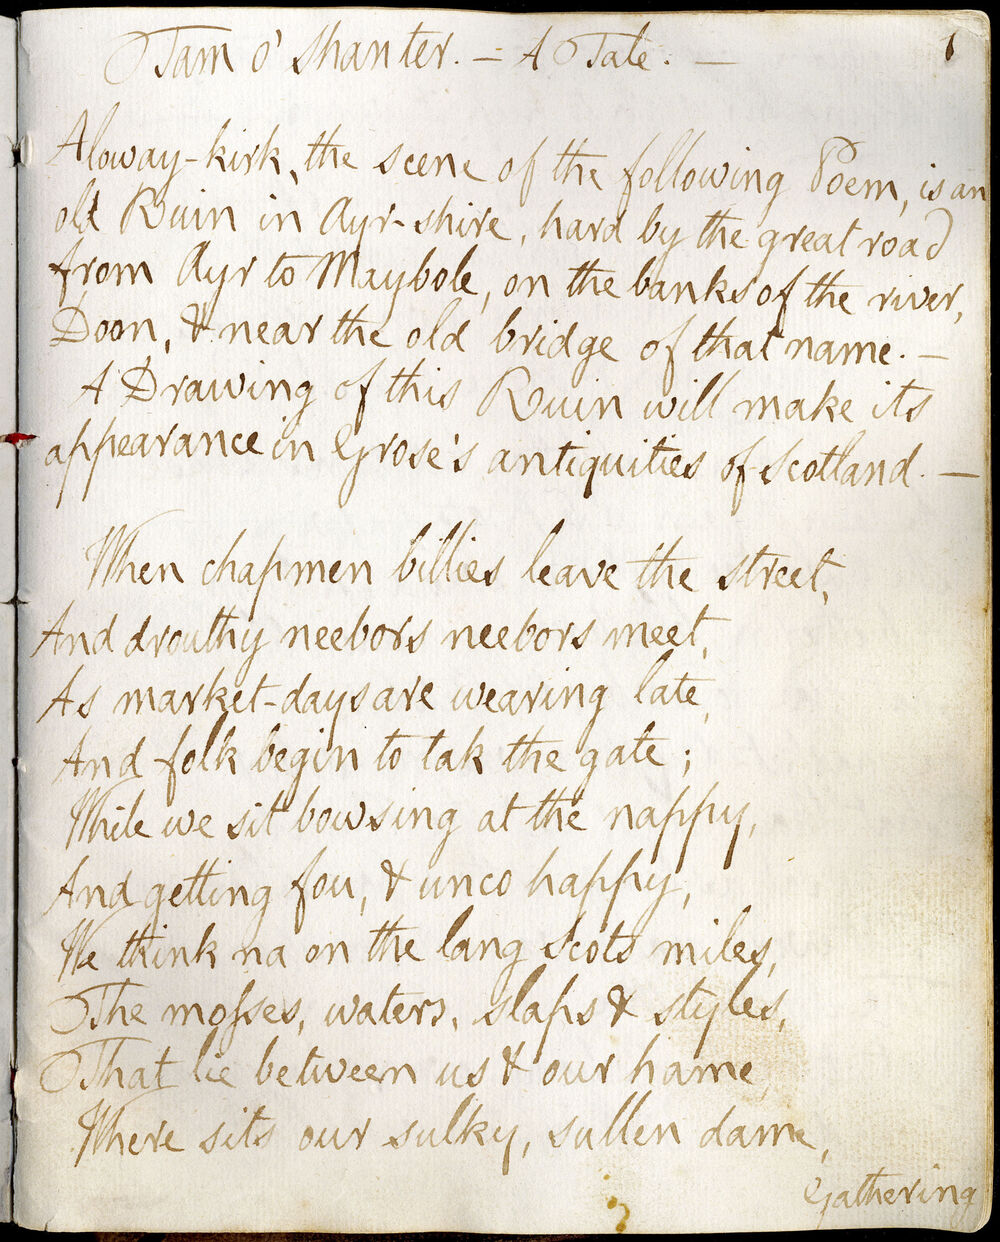 Tam o' Shanter. — A Tale. —
1
Aloway-kirk, the scene of the following Poem, is an
old Ruin in Ayr-shire, hard by the great road
from Ayr to Maybole, on the banks of the river,
Doon, & near the old bridge of that name. —
A Drawing of this Ruin will make its
appearance in Grose's antiquities of Scotland. —
When chapmen billies leave the street,
And drouthy neebors neebors meet,
As market-days are wearing late,
And folk begin to tak the gate;
While we sit bowsing at the nappy,
And getting fou, & unco happy,
We think na on the lang Scots miles,
The mosses, waters, slaps & styles,
That lie between us & our hame
Where sits our sulky, sullen dame,
Gathering